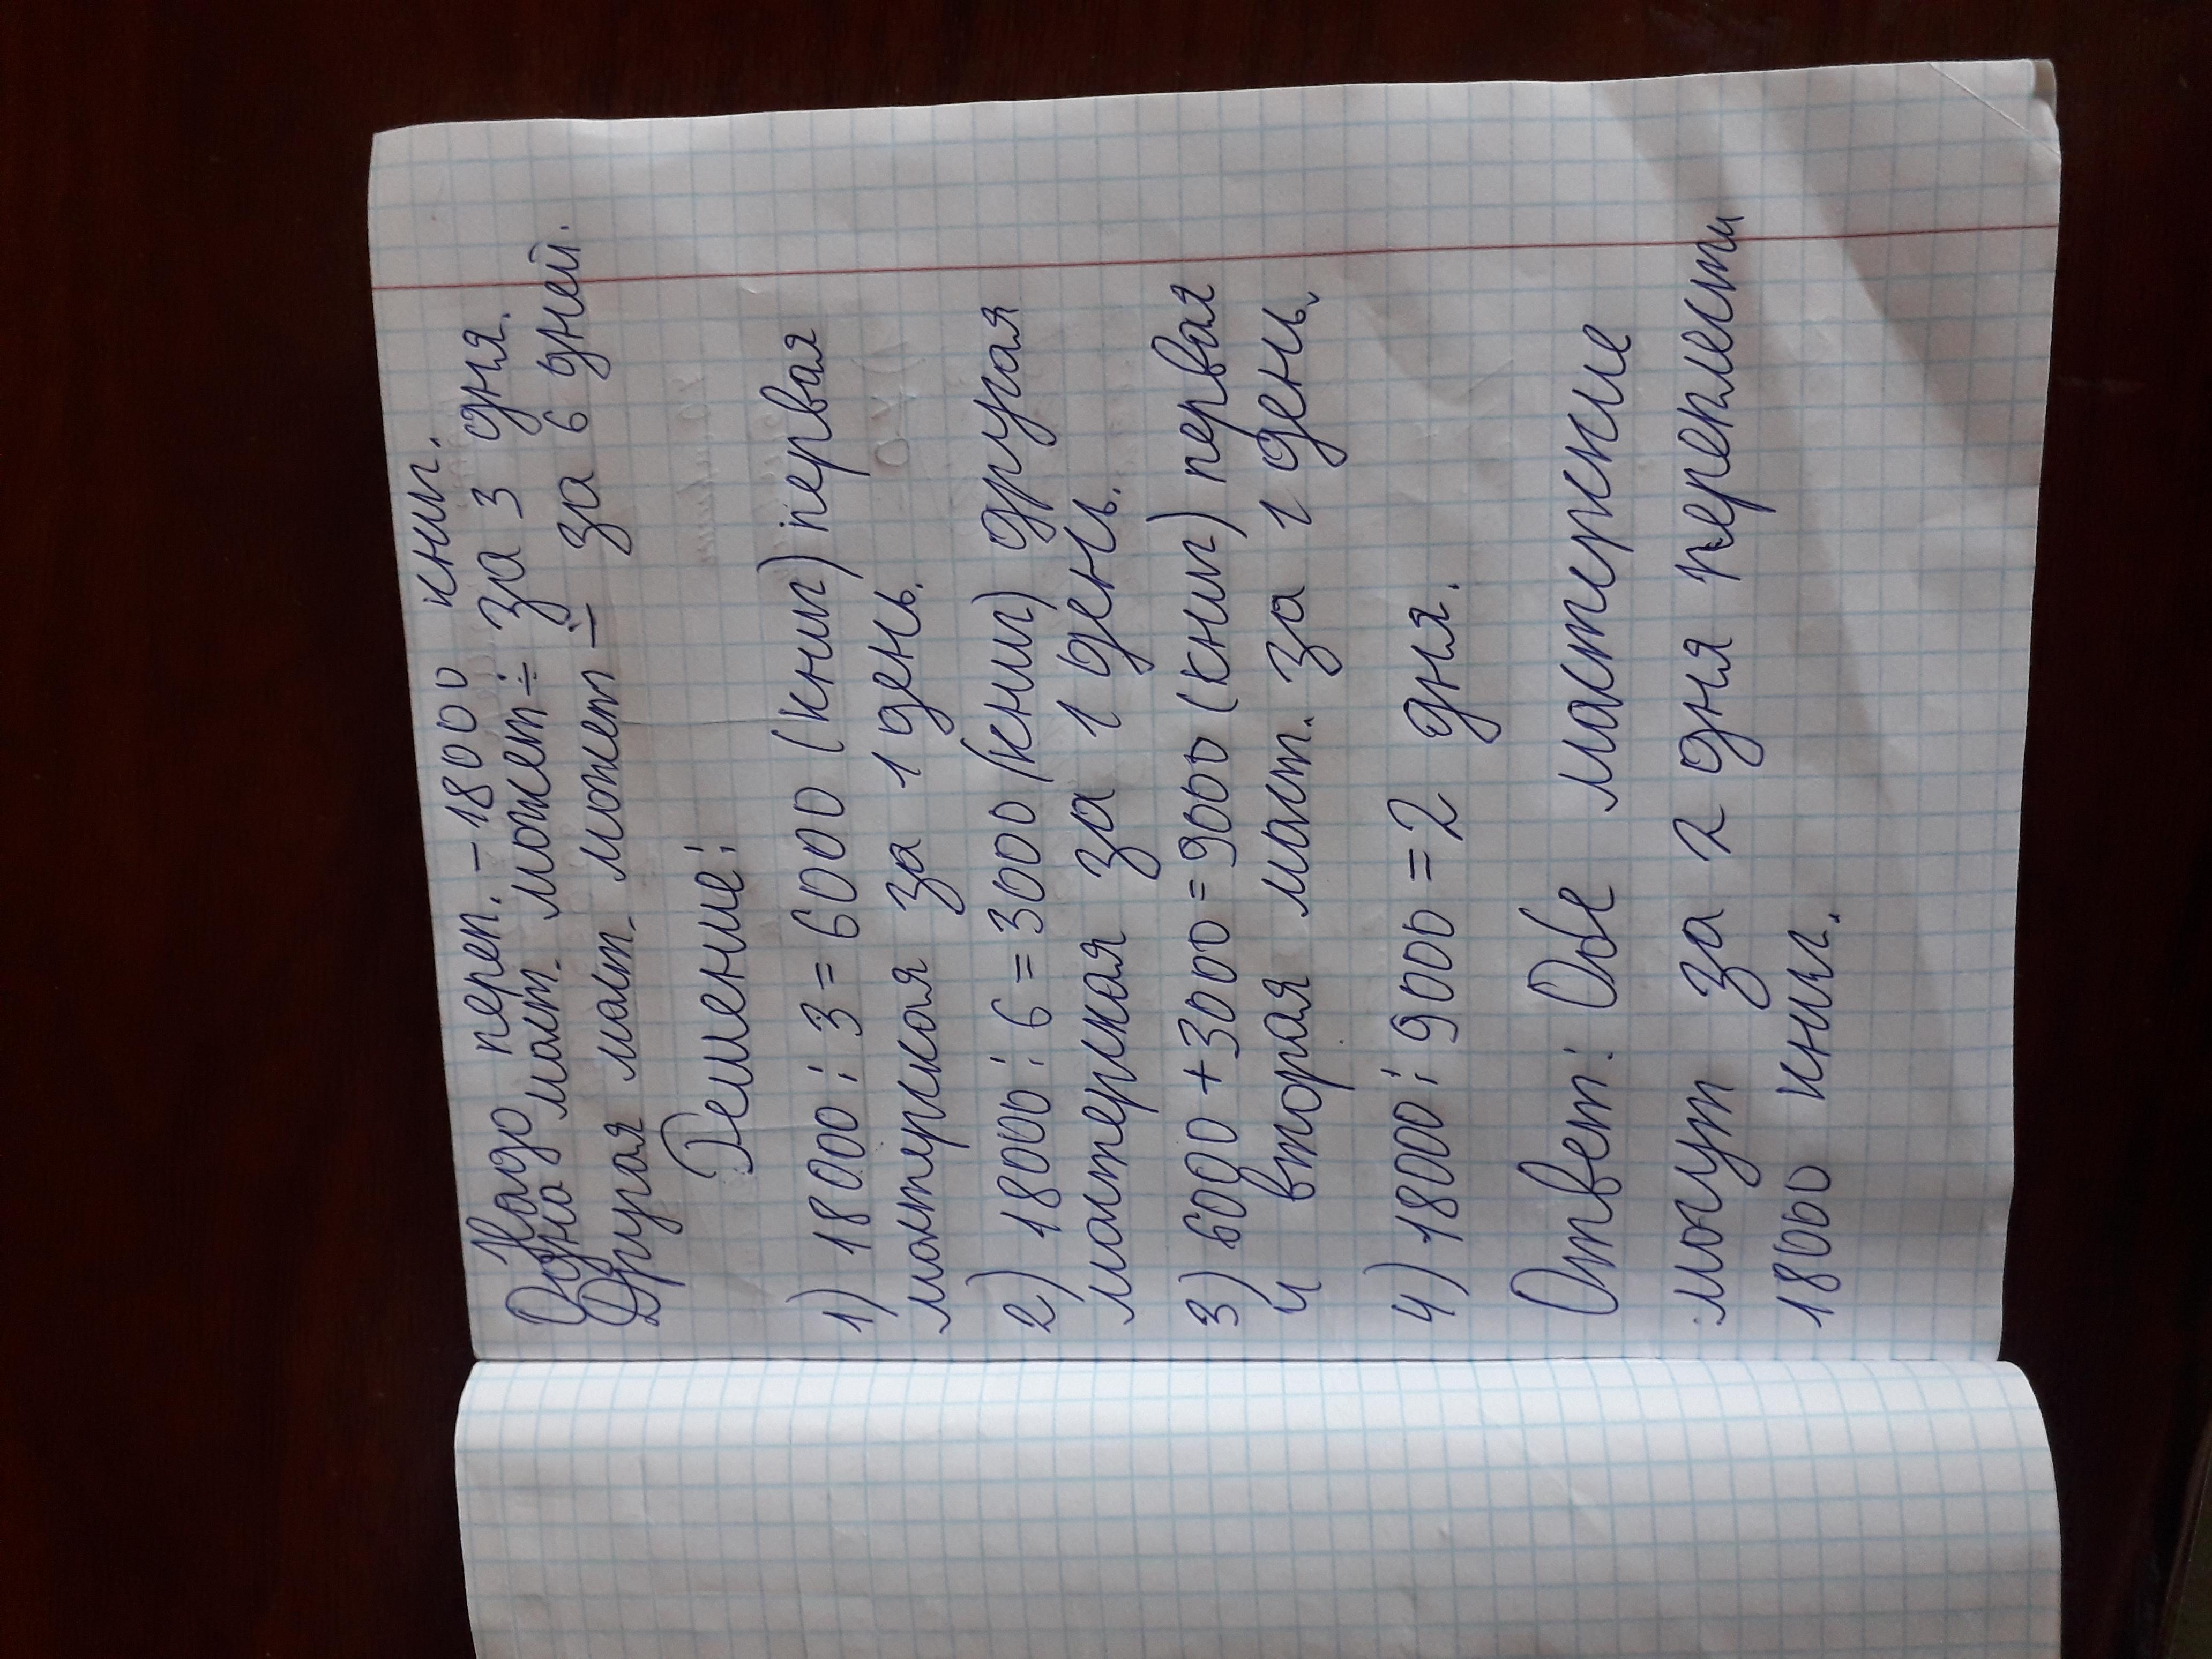 Надо переп. - 18000 книг.
Одна маст. может - за 3 дня.
Другая маст. может - за 6 дней.
Решение:
1) 18000 : 3 = 6000 (книг) первая
мастерская за 1 день.
2) 18000 : 6 = 3000 (книг) другая
мастерская за 1 день.
3) 6000 + 3000 = 9000 (книг) первая
и вторая маст. за 1 день.
4) 18000 : 9000 = 2 дня.
Ответ: Обе мастерские
могут за 2 дня переплести
18000 книг.